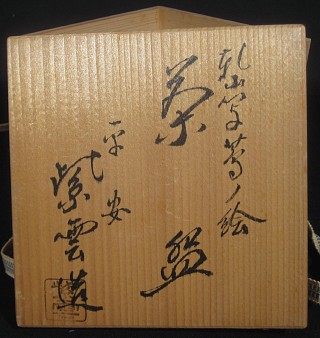 乾山写蔦ノ絵
茶盌
平安
紫雲造